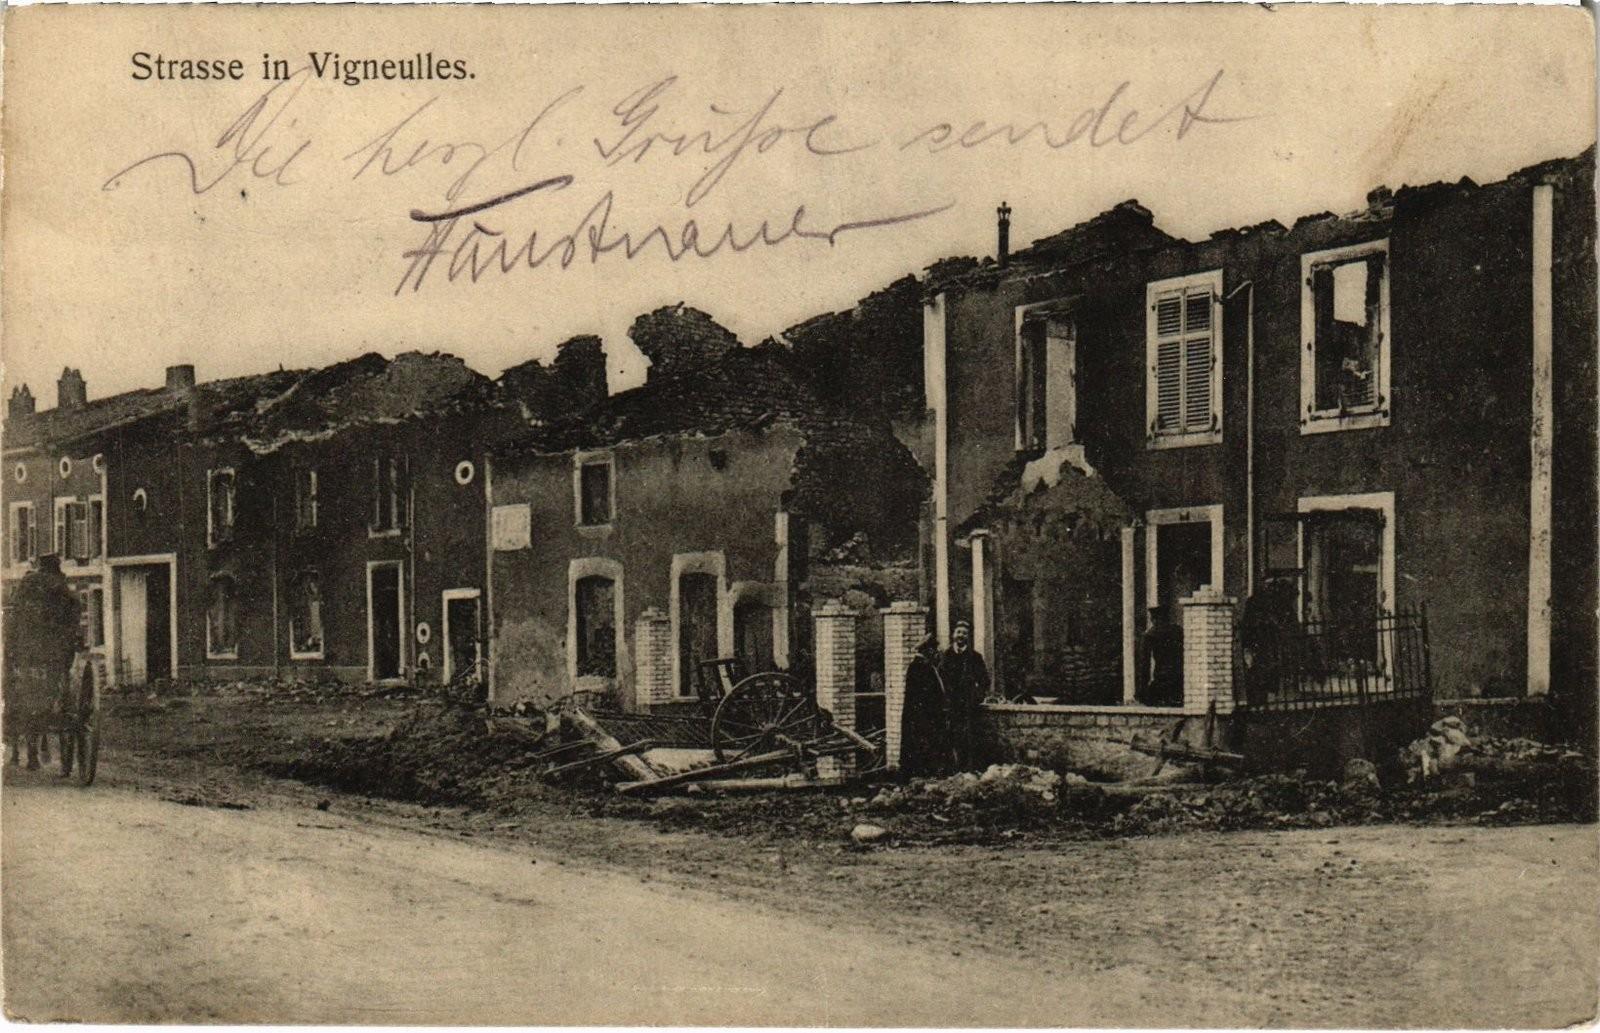 Strasse in Vigneulles.
Die herzl. Grüsse sendet